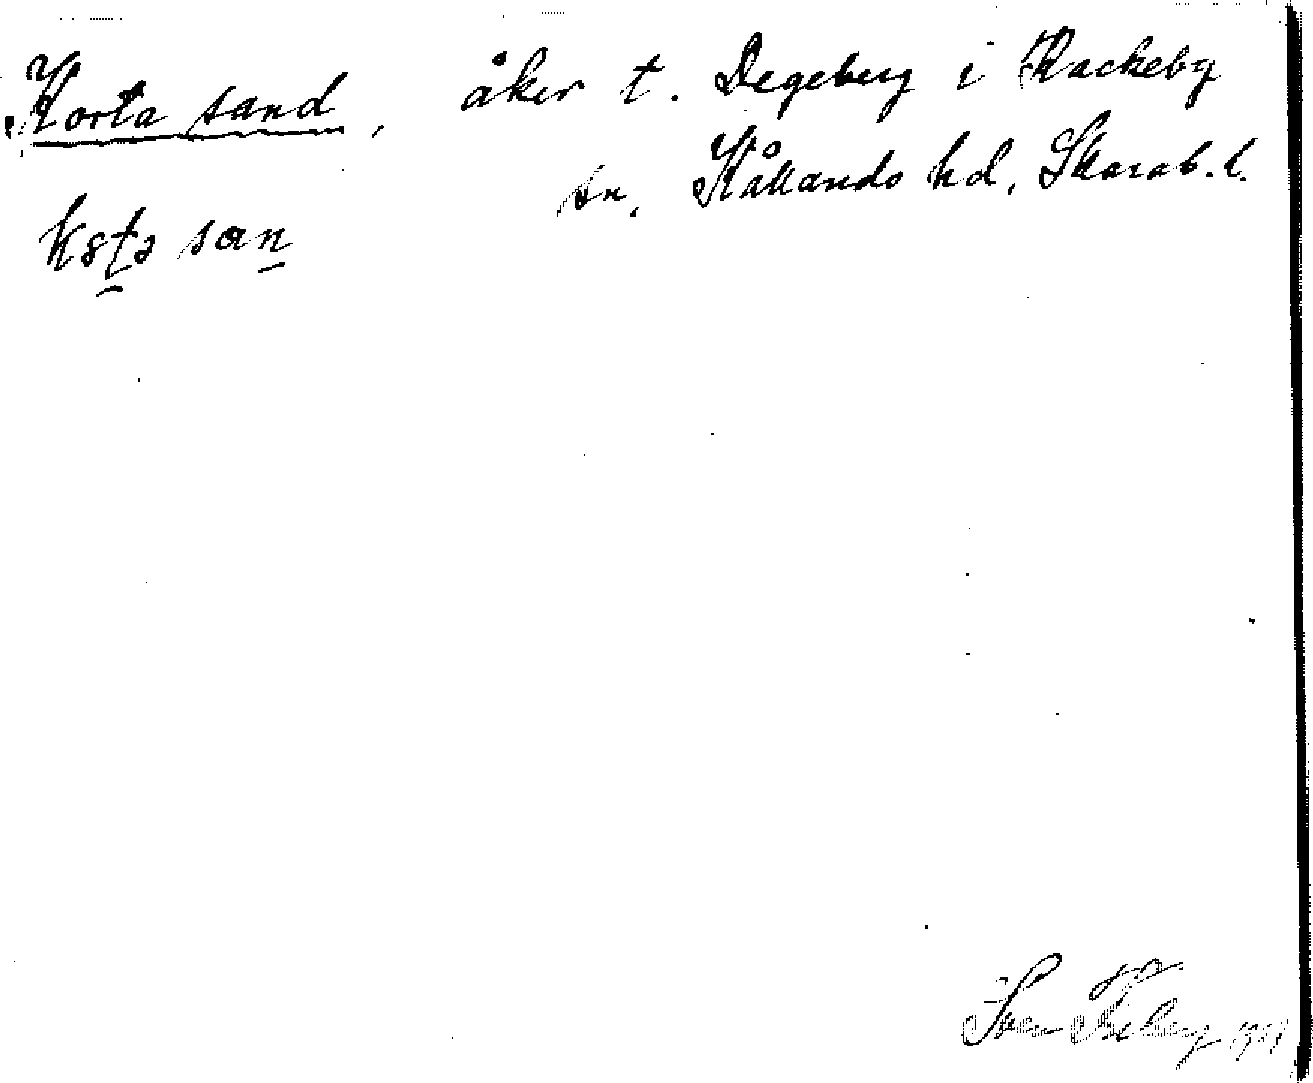 Korta sand, åker t. Degeberg i Rackeby
sn, Kållands hd, Skarab. l.
Sven